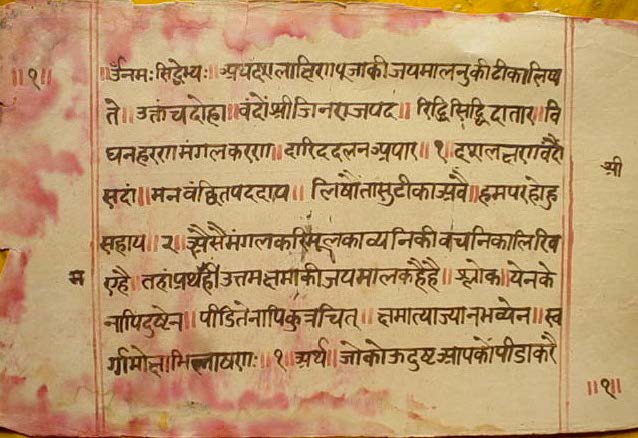 ॥१॥ ॐनमःसिद्धेभ्यः॥ अथदशलाक्षिणपूजाकीजयमालनुकीटीकालिष्य
ते॥ उक्तंचदोहा॥ वंदौंश्रीजिनराजपद॥ रिद्धिसिद्धिदातार॥ वि
घनहरणमंगलकरण॥ दारिददलनअपार॥१॥ दशलक्षणवंदौं श्री
सदां॥ मनवंछितपददाय॥ लिषौंतासुटीकाअवै॥ हमपरहोहु
सहाय॥२॥ अैसैमंगलकरिमूलकाव्यनिकीवचनिकालिखि
एहै॥ तहांप्रथमहीउत्तमक्षमाकीजयमालकहैहै॥ श्लोक॥ येनके
नापिदुष्टेन॥ पीडितेनापिकुत्रचित्॥ क्षमात्याज्यानभव्येन॥ स्व
र्गमोक्षाभिलाषिणः॥१॥ अर्थ॥ जोकोऊदुष्टआपकौंपीडाकरै
॥१॥